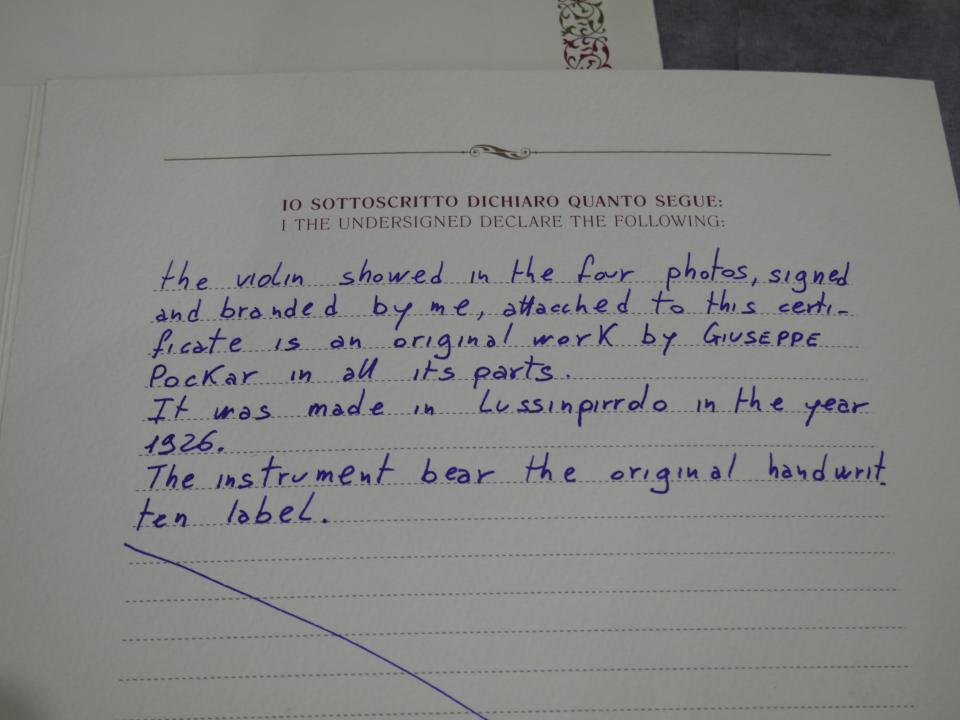 IO SOTTOSCRITTO DICHIARO QUANTO SEGUE:
I THE UNDERSIGNED DECLARE THE FOLLOWING:
the violin showed in the four photos, signed
and branded by me, attacched to this certi-
ficate is an original work by GIUSEPPE
Pockar in all its parts.
It was made in Lussinpirrolo in the year
1926.
The instrument bear the original handwrit
ten label.